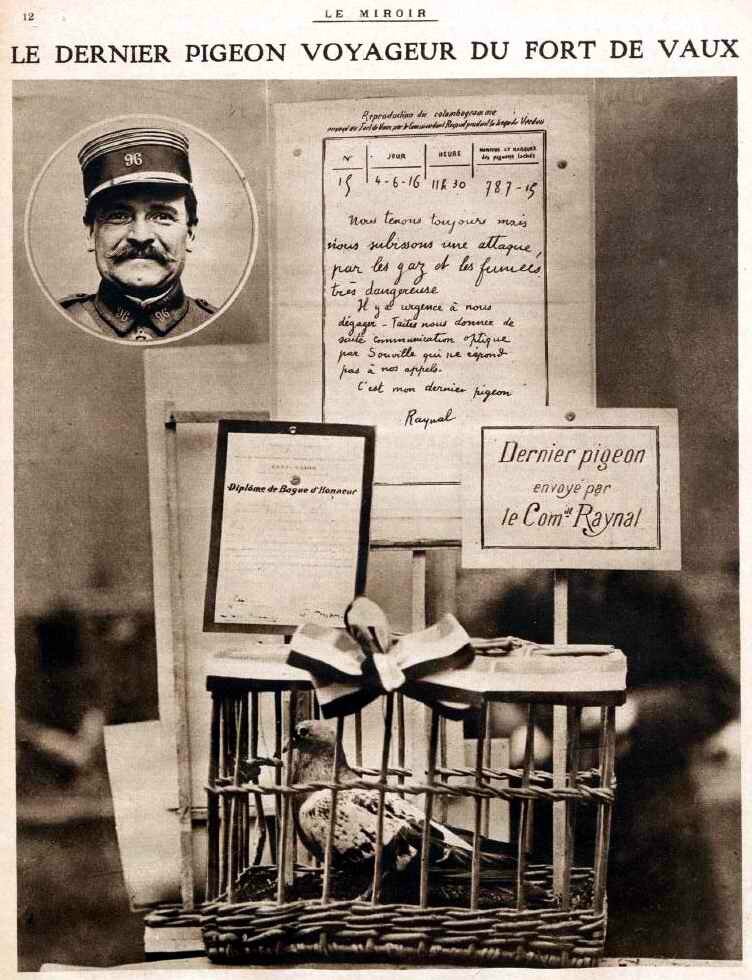 12
LE MIROIR
LE DERNIER PIGEON VOYAGEUR DU FORT DE VAUX
96
96
96
Reproduction du colombogramme
envoyé du Fort de Vaux par le Commandant Raynal pendant le siège de Verdun
N° JOUR HEURE NUMÉROS ET MARQUES
des pigeons lachés
15 4-6-16 11h 30 787-15
Nous tenons toujours mais
nous subissons une attaque,
par les gaz et les fumées
très dangereuse
Il y a urgence à nous
dégager - Faites nous donner de
suite communication optique
par Souville qui ne répond
pas à nos appels.
C'est mon dernier pigeon
Raynal
Diplôme de Bague d'Honneur
Dernier pigeon
envoyé par
le Comdt Raynal